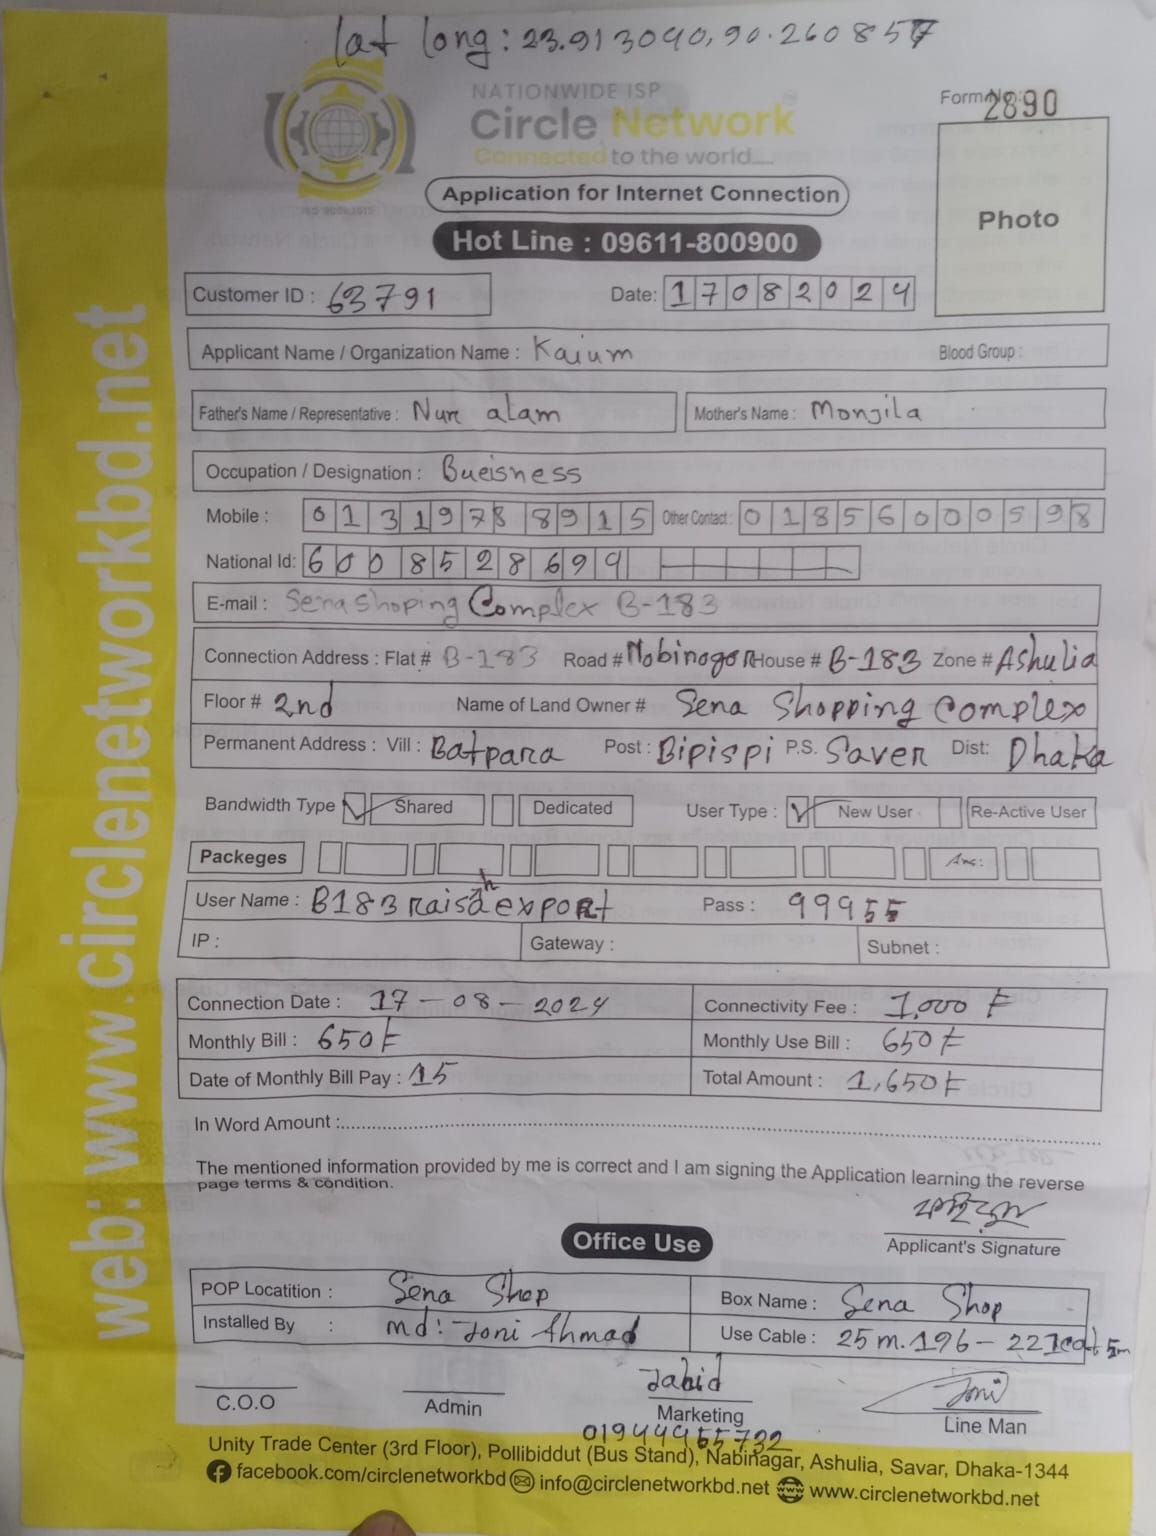 lat long: 23.913040, 90.260857
NATIONWIDE ISP
Circle Network
Connected to the world.....
ISO 9001:2015
Form No: 2890
Photo
Application for Internet Connection
Hot Line : 09611-800900
Customer ID : 63791 Date: 17082024
Applicant Name / Organization Name : Kaium Blood Group :
Father's Name / Representative : Nur alam Mother's Name : Monjila
Occupation / Designation : Bueisness
Mobile : 01319788915 Other Contact : 01856000598
National Id: 6008528699
E-mail : Sena Shoping Complex B-183
Connection Address : Flat # B-183 Road # Nobinogor House # B-183 Zone # Ashulia
Floor # 2nd Name of Land Owner # Sena Shopping Complex
Permanent Address : Vill : Batpara Post : Bipispi P.S. Saver Dist: Dhaka
Bandwidth Type Shared Dedicated User Type : New User Re-Active User
Packeges
User Name : B183raisahexport Pass : 99955
IP : Gateway : Subnet :
Connection Date : 17-08-2024 Connectivity Fee : 1,000 ₣
Monthly Bill : 650 ₣ Monthly Use Bill : 650 ₣
Date of Monthly Bill Pay : 15 Total Amount : 1,650 ₣
In Word Amount :
The mentioned information provided by me is correct and I am signing the Application learning the reverse
page terms & condition.
Applicant's Signature
Office Use
POP Locatition : Sena Shop Box Name : Sena Shop
Installed By : md: Joni Ahmad Use Cable : 25m. 196-221 cat 5m
Jahid Joni
C.O.O Admin Marketing Line Man
01944955732
Unity Trade Center (3rd Floor), Pollibiddut (Bus Stand), Nabinagar, Ashulia, Savar, Dhaka-1344
facebook.com/circlenetworkbd info@circlenetworkbd.net www.circlenetworkbd.net
web: www.circlenetworkbd.net